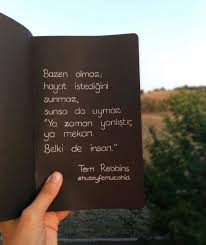 Bazen olmaz;
hayat istediğini
sunmaz,
sunsa da uymaz.
"Ya zaman yanlıştır,
ya mekan.
Belki de insan."
Tom Robbins
@huzeyfemucahid